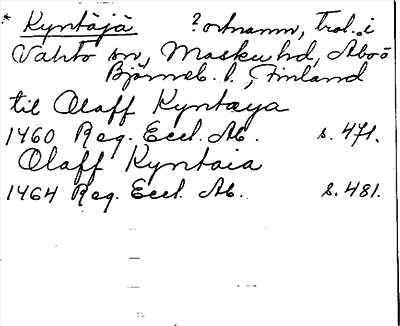 * Kyntäjä ? ortnamn, trol. i
Vahto sn, Masku hd, Åbo ö
Björneb. l., Finland
til Olaff Kyntæya
1460 Reg. Eccl. Ab. s. 471.
Olaff Kyntaia
1464 Reg. Eccl. Ab. s. 481.